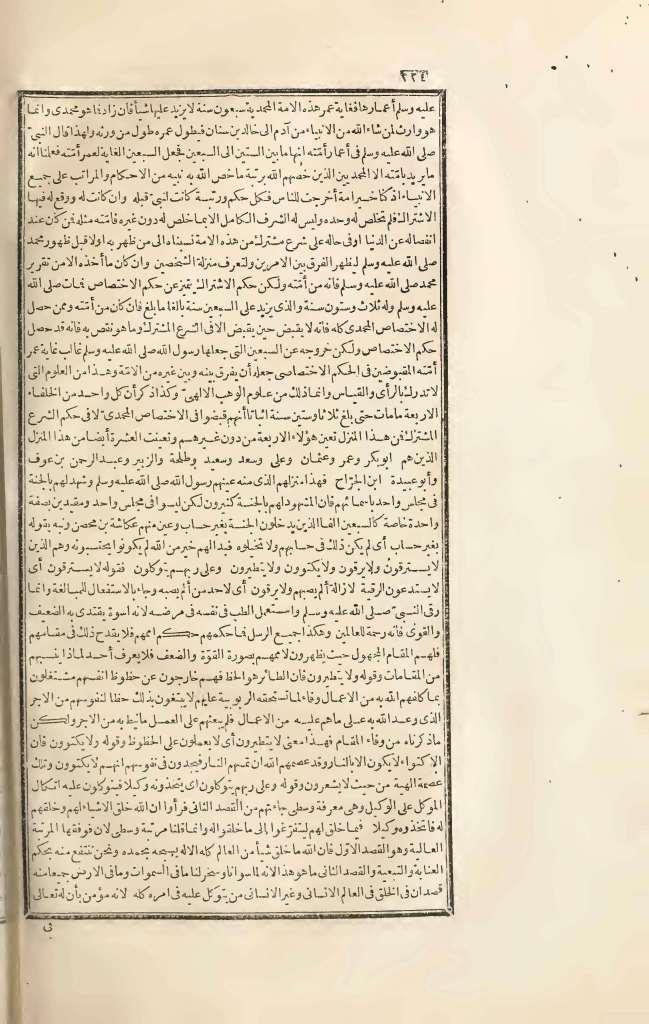 ٢٢٤
عليه وسلم أعمارها فغاية عمر هذه الامة المحمدية سبعون سنة لا يزيد عليها شيأ فان زاد فما هو محمدى وانما
هو وارث لمن شاء الله من الانبياء من آدم الى خالد بن سنان فيطول عمره طول من ورثه ولهذا قال النبى
صلى الله عليه وسلم فى أعمار أمّته انها ما بين الستين الى السبعين فجعل السبعين الغاية لعمر أمّته فعلمنا انه
ما يريد بامّته الا المحمديين الذين خصهم الله برتبة ما خص الله به نبيه من الاحكام والمراتب على جميع
الانبياء اذ كنا خير أمة أخرجت للناس فكل حكم ورتبة كانت لنبىّ قبله وان كانت له ووقع له فيها
الاشتراك فلم تخلص له وحده وليس له الشرف الكامل الا بما خلص له دون غيره فامّته مثله فمن كان عند
انفصاله عن الدنيا أو فى حاله على شرع مشترك من هذه الامة نسبناه الى من ظهر به أولا قبل ظهور محمد
صلى الله عليه وسلم ليظهر الفرق بين الامرين ولتعرف منزلة الشخصين وان كان ما أخذه الا من تقرير
محمد صلى الله عليه وسلم فانه من أمّته ولكن حكم الاشتراك يتميز عن حكم الاختصاص فمات صلى الله
عليه وسلم وله ثلاث وستون سنة والذى يزيد على السبعين سنة بالغا ما بلغ فان كان من أمّته وممن حصل
له الاختصاص المحمدى كله فانه لا يقبض حين يقبض الا فى الشرع المشترك وما هو نقص به فانه قد حصل
حكم الاختصاص ولكن خروجه عن السبعين التى جعلها رسول الله صلى الله عليه وسلم غاية عمر
أمّته المقبوضين فى الحكم الاختصاصى جعله أن يفرق بينه وبين غيره من الامّة وهذا من العلوم التى
لا تدرك بالرأى والقياس وانما ذلك من علوم الوهب الالهىّ وكذا ذكر أن كل واحد من الخلفاء
الاربعة ما مات حتى بلغ ثلاثا وستين سنة اثباتا أنهم قبضوا فى الاختصاص المحمدى لا فى حكم الشرع
المشترك فمن هذا المنزل تعين هؤلاء الاربعة من دون غيرهم وتعينت العشرة أيضا من هذا المنزل
الذين هم ابوبكر وعمر وعثمان وعلى وسعد وسعيد وطلحة والزبير وعبد الرحمن بن عوف
وأبو عبيدة ابن الجرّاح فهذا منزلهم الذى منه عينهم رسول الله صلى الله عليه وسلم وشهد لهم بالجنة
فى مجلس واحد باسمائهم فان المشهود لهم بالجنة كثيرون لكن ليسوا فى مجلس واحد ومقيدين بصفة
واحدة خاصة كالسبعين ألفا الذين يدخلون الجنة بغير حساب وعين منهم عكاشة بن محصن ونبه بقوله
بغير حساب أى لم يكن ذلك فى حسابهم ولا تخيلوه فبدا لهم خير من الله لم يكونوا يحتسبونه وهم الذين
لا يسترقون ولا يرقون ولا يكتوون ولا يتطيرون وعلى ربهم يتوكلون فقوله لا يسترقون أى
لا يستدعون الرقية لازالة ألم يصيبهم ولا يرقون أى لاحد من ألم يصيبه وجاء بالاستفعال للمبالغة وانما
رقى النبىّ صلى الله عليه وسلم واستعمل الطب فى نفسه فى مرضه لانه اسوة يقتدى به الضعيف
والقوى فانه رحمة للعالمين وهكذا جميع الرسل فما حكمهم حكم اممهم فلا يقدح ذلك فى مقامهم
فلهم المقام المجهول حيث يظهرون لاممهم بصورة القوّة والضعف فلا يعرف أحد لماذا ينسبهم
من المقامات وقوله ولا يتطيرون فان الطائر هو الحظ فهم خارجون عن حظوظ انفسهم مشتغلون
بما كلفهم الله به من الاعمال وفاء لما تستحقه الربوبية عليهم لا يبتغون بذلك حظا لنفوسهم من الاجر
الذى وعد الله به على ما هم عليه من الاعمال فلم يعثهم على العمل ما نيط به من الاجر ولكن
ما ذكرناه من وفاء المقام فهذا معنى لا يتطيرون أى لا يعملون على الحظوظ وقوله ولا يكتوون فان
الاكتواء لا يكون الا بالنار وقد عصمهم الله ان تمسهم النار فيجدون فى نفوسهم انهم لا يكتوون وتلك
عصمة الهية من حيث لا يشعرون وقوله وعلى ربهم يتوكلون أى يتخذونه وكيلا فيتوكلون عليه اتكال
الموكل على الوكيل وهى معرفة وسطى جاءتهم من القصد الثانى فرأوا ان الله خلق الاشياء لهم وخلقهم
له فاتخذوه وكيلا فيما خلق لهم ليتفرّغوا الى ما خلقوا له وانما قلنا مرتبة وسطى لان فوقها المرتبة
العالية وهو القصد الاوّل فان الله ما خلق شيأ من العالم كله الا له يسبحه بحمده ونحن ننتفع منه بحكم
العناية والتبعية والقصد الثانى ما هو هذا لانه لما سوانا وسخر لنا ما فى السموات وما فى الارض جميعا منه
قصد ان فى الخلق فى العالم الانسانى وغير الانسانى من يتوكل عليه فى امره كله لانه مؤمن بأن له تعالى
فى